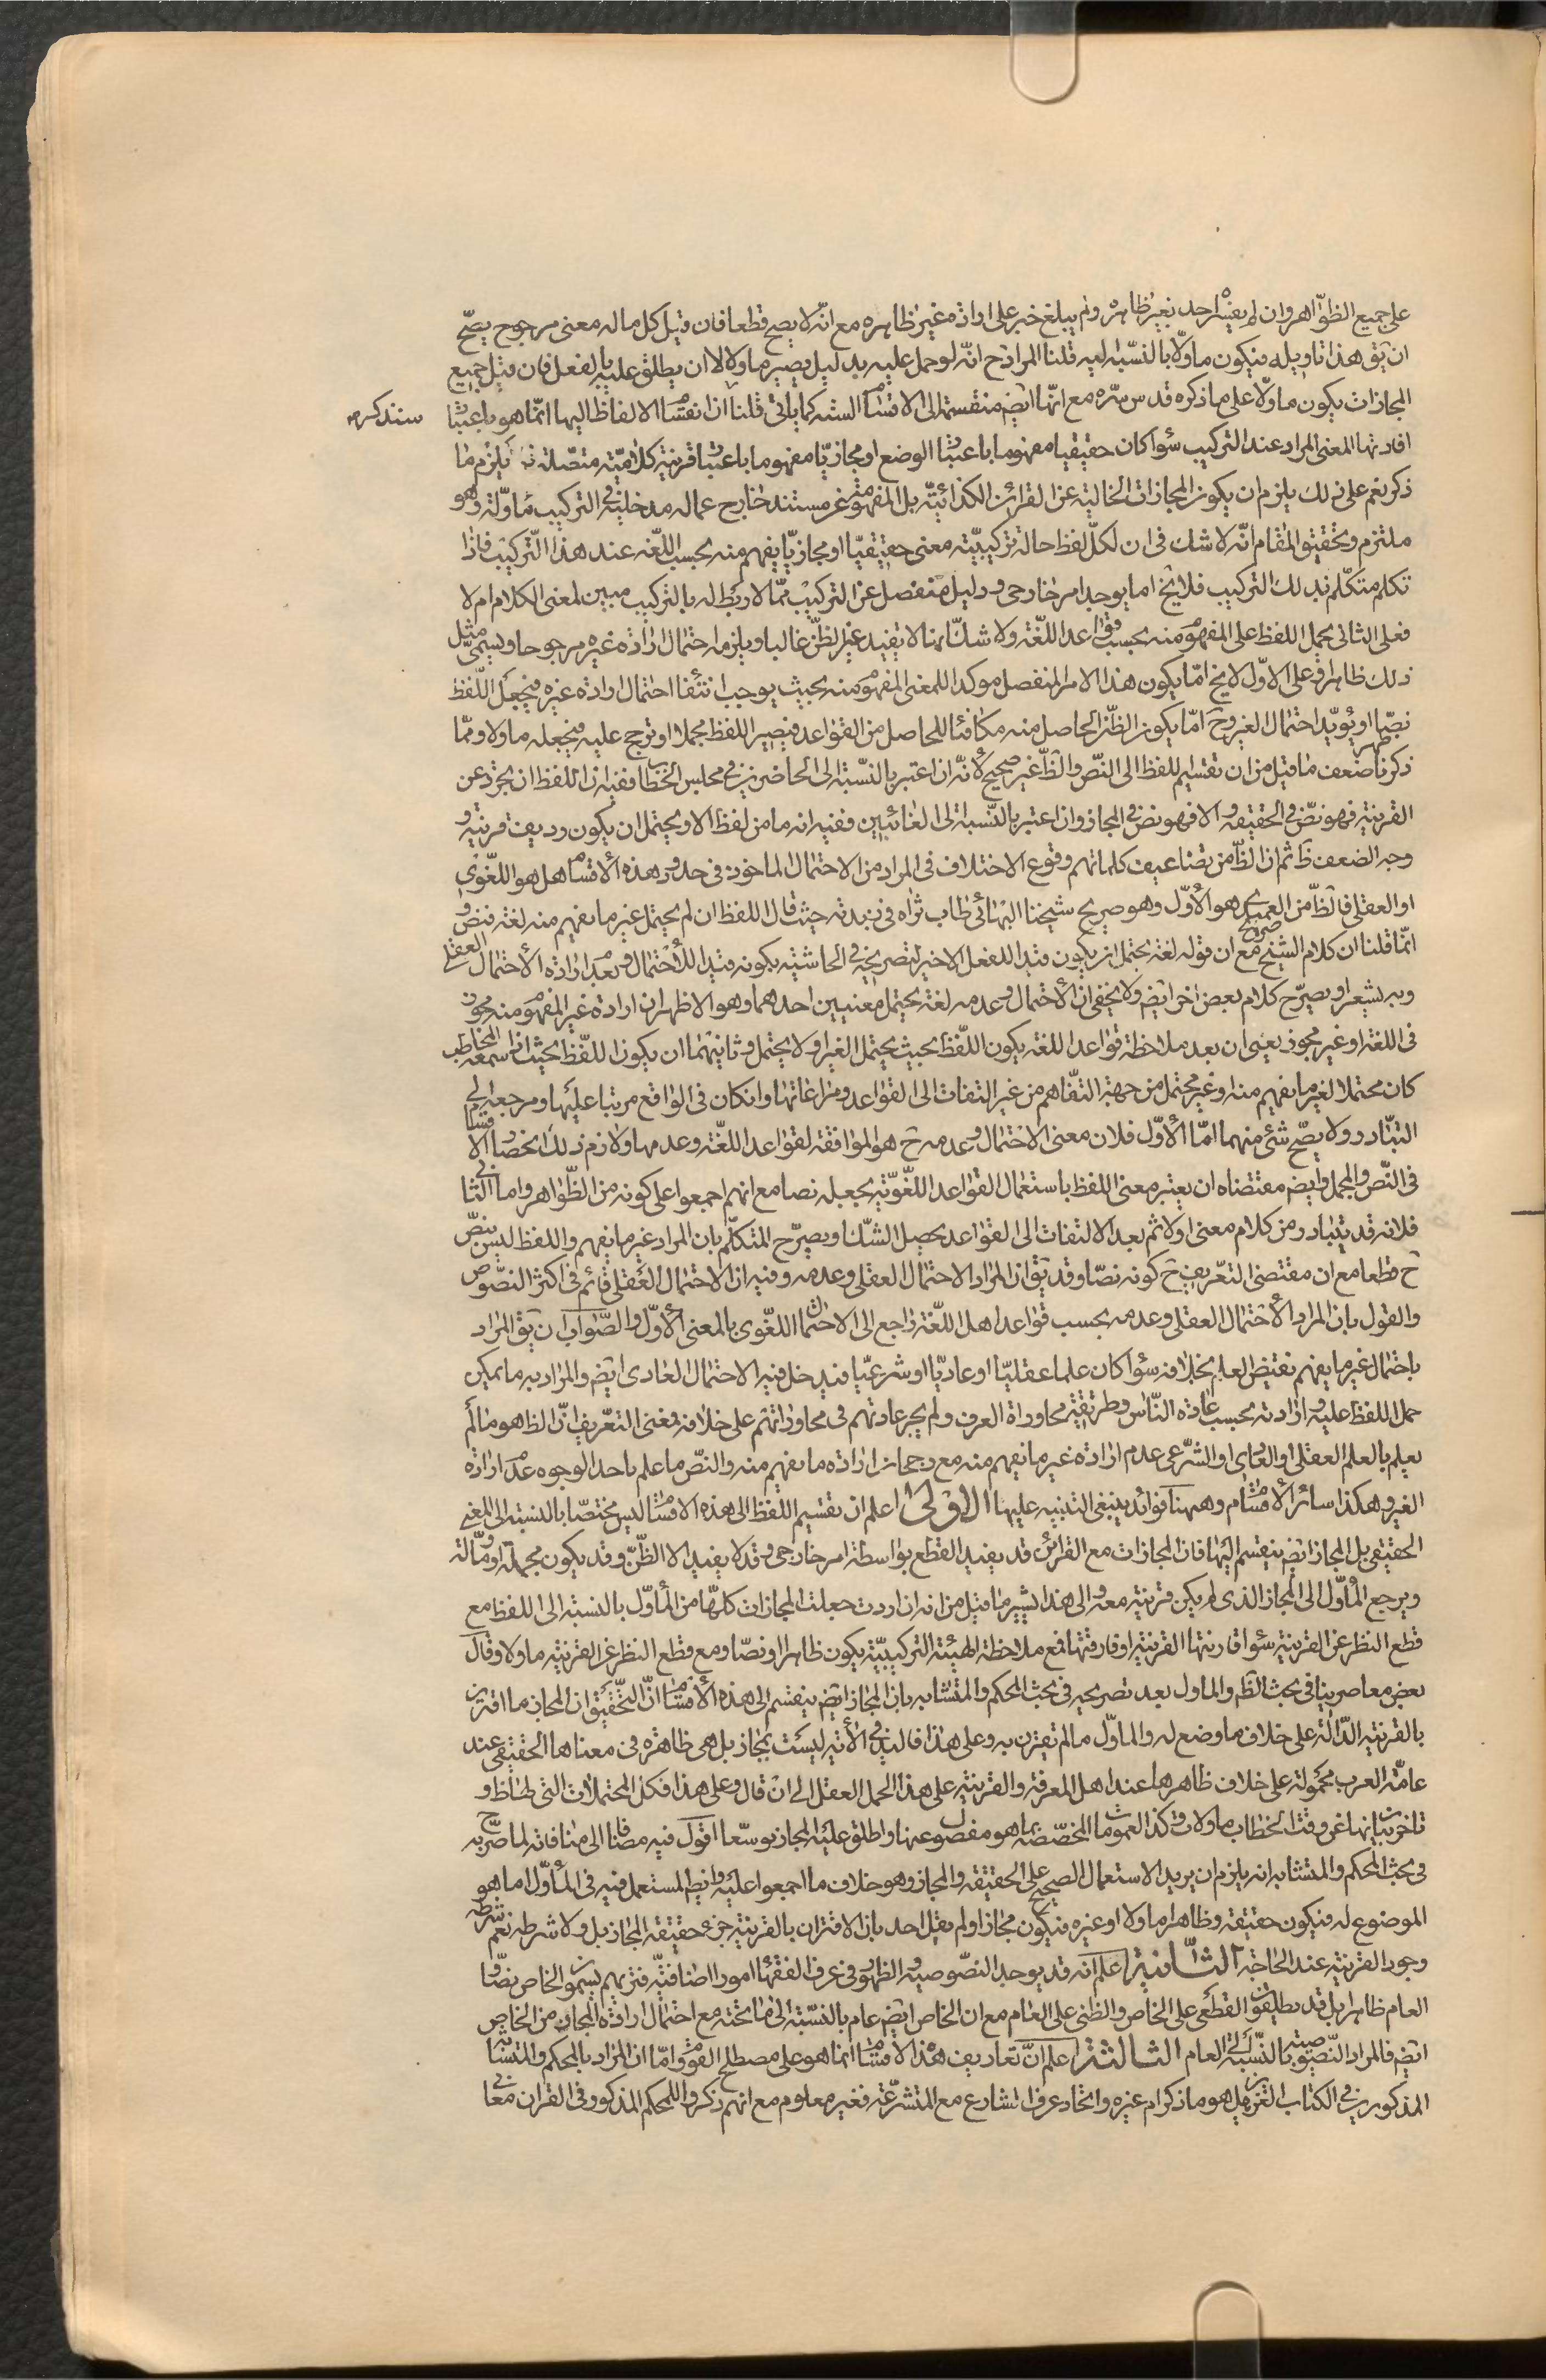 على جميع الظواهر وان لم يعبره احد بغير ظاهره ولم يبلغ خبر على ارادة غير ظاهره مع انه لا يصح قطعا فان قيل كل ما له معنى مرجوح يصح
ان يق هذا تاويله فيكون ماولا بالنسبة اليه قلنا المراد ح انه لو حمل عليه بدليل يصير ماولا لا ان يطلق عليه بالفعل فان قيل جميع
المجازات يكون ماولا على ما ذكره قدس سره مع انها ايضم منقسمة الى الاقسام الستة كما ياتى قلنا ان انقسام الالفاظ اليها انما هو باعتبار
سنذكره
افادتها المعنى المراد عند التركيب سواء كان حقيقيا مفهوما باعتبار الوضع او مجازيا مفهوما باعتبار قرينة كلامية متصلة فلا يلزم ما
ذكر نعم على ذلك يلزم ان يكون المجازات الخالية عن القرائن الكذائية بل المفهومة عن مستند خارج عما له مدخلية فى التركيب ماولة وهو
ملتزم وتحقيق المقام انه لا شك فى ان لكل لفظ حالة تركيبية معنى حقيقيا او مجازيا يفهم منه بحسب اللغة عند هذا التركيب فاذا
تكلم متكلم بذلك التركيب فلا يخ اما يوجد امر خارجى ودليل منفصل عن التركيب مما لا ربط له بالتركيب مبين لمعنى الكلام ام لا
فعلى الثانى يحمل اللفظ على المفهوم منه بحسب قواعد اللغة ولا شك انها لا تفيد غير الظن غالبا ويلزمه احتمال ارادة غيره مرجوحا ويسمى مثل
ذلك ظاهرا وعلى الاول لا يخ اما يكون هذا الامر المنفصل موكدا للمعنى المفهوم منه بحيث يوجب انتفاء احتمال ارادة غيره فيجعل اللفظ
نصا او يؤيد احتمال الغير وح اما يكون الظن الحاصل منه مكافئا للحاصل من القواعد فيصير اللفظ مجملا او ترجح عليه فيجعله ماولا ومما
ذكرنا ظهر ضعف ما قيل من ان تقسيم اللفظ الى النص والظ غير صحيح لانه ان اعتبر بالنسبة الى الحاضرين فى مجلس الخطاب ففيه ان اللفظ ان تجرد عن
القرينة فهو نص فى الحقيقة والا فهو نص فى المجاز وان اعتبر بالنسبة الى الغائبين ففيه انه ما من لفظ الا ويحتمل ان يكون رديف قرينة و
وجه الضعف ظ ثم ان الظ من تضاعيف كلماتهم وقوع الاختلاف فى المراد من الاحتمال الماخوذ فى حدود هذه الاقسام هل هو اللغوى
او العقلى فالظ من العميدى هو الاول وهو صريح شيخنا البهائى طاب ثراه فى زبدته حيث قال اللفظ ان لم يحتمل غير ما يفهم منه لغة فنص و
انما قلنا ان كلام الشيخ صريح مع ان قوله لغة يحتمل ان يكون قيد اللفعل الاخير لتصريحه فى الحاشية بكونه قيدا للاحتمال وبعد ارادة الاحتمال العقلى
وبه يشعر او يصرح كلام بعض اخر ايضم ولا يخفى ان الاحتمال وعدمه لغة يحتمل معنيين احدهما وهو الاظهر ان ارادة غير المفهوم منه مجوز
فى اللغة او غير مجوز يعنى ان بعد ملاحظة قواعد اللغة يكون اللفظ بحيث يحتمل الغير او لا يحتمل وثانيهما ان يكون اللفظ بحيث اذا سمعه المخاطب
كان محتملا لغير ما يفهم منه او غير محتمل من جهة التفاهم من غير التفات الى القواعد ومراعاتها وان كان فى الواقع مرتبا عليها ومرجعه الى
التبادر ولا يصح شئ منهما اما الاول فلان معنى الاحتمال وعدمه ح هو الموافقة لقواعد اللغة وعدمها ولازم ذلك انحصار الاقسام
فى النص والمجمل وايضم مقتضاه ان يعتبر معنى اللفظ باستعمال القواعد اللغوية يجعله نصا مع انهم اجمعوا على كونه من الظواهر واما الثانى
فلانه قد يتبادر من كلام معنى اولا ثم بعد الالتفات الى القواعد يحصل الشك او يصرح المتكلم بان المراد غير ما يفهم واللفظ ليس بنص
ح قطعا مع ان مقتضى التعريف ح كونه نصا وقد يق ان المراد الاحتمال العقلى وعدمه وفيه ان الاحتمال العقلى قائم فى اكثر النصوص
والقول بان المراد الاحتمال العقلى وعدمه بحسب قواعد اهل اللغة راجع الى الاحتمال اللغوى بالمعنى الاول والصواب ان يق المراد
باحتمال غير ما يفهم نقيض العلم بخلافه سواء كان علما عقليا او عاديا او شرعيا فيدخل فيه الاحتمال العادى ايضم والمراد به ما يمكن
حمل اللفظ عليه وارادته بحسب عادة الناس وطريقة محاورات العرف ولم يجر عادتهم فى محاوراتهم على خلافه فمعنى التعريف ان الظ هو ما لم
يعلم بالعلم العقلى او العادى او الشرعى عدم ارادة غير ما يفهم منه مع رجحان ارادة ما يفهم منه والنص ما علم باحد الوجوه عدم ارادة
الغير وهكذا سائر الاقسام وههنا فوائد ينبغى التنبيه عليها الاولى اعلم ان تقسيم اللفظ الى هذه الاقسام ليس مختصا بالنسبة الى المعنى
الحقيقى بل المجاز ايضم ينقسم اليها فان المجازات مع القرائن قد يفيد القطع بواسطة امر خارجى وقد لا يفيد الا الظن وقد يكون مجملة او ماولة
ويرجع المأول الى المجاز الذى لم يكن قرينة معه والى هذا يشير ما قيل من انه ان اردت جعلت المجازات كلها من المأول بالنسبة الى اللفظ مع
قطع النظر عن القرينة سواء قارنتها القرينة او فارقتها فمع ملاحظة الهيئة التركيبية يكون ظاهرا ونصا ومع قطع النظر عن القرينة ماولا وقال
بعض معاصرينا فى بحث الظم والماول بعد تصريحه فى بحث المحكم والمتشابه بان المجاز ايضم ينقسم الى هذه الاقسام ان التحقيق ان المجاز ما اقترن
بالقرينة الدالة على خلاف ما وضع له والماول ما لم تقترن به وعلى هذا فاليد فى الآية ليست بمجاز بل هى ظاهرة فى معناها الحقيقى عند
عامة العرب محمولة على خلاف ظاهرها عند اهل المعرفة والقرينة على هذا الحمل العقل الى ان قال وعلى هذا فكل المحتملات التى لها ظ و
تاخر بيانها عن وقت الخطاب ماولات وكذا العمومات المخصصة بما هو مفصول عنها واطلق عليه المجاز توسعا اقول فيه مضافا الى منافاته لما صرح به
فى بحث المحكم والمتشابه انه يلزم ان يريد الاستعمال الصحيح على الحقيقة والمجاز وهو خلاف ما اجمعوا عليه وايضم المستعمل فيه فى المأول اما هو
الموضوع له فيكون حقيقة وظاهرا ماولا او غيره فيكون مجازا ولم يقل احد بان الاقتران بالقرينة جزء حقيقة المجاز بل ولا شرطه نعم شرطه
وجود القرينة عند الحاجة الثانية اعلم انه قد يوجد النصوصية والظهور فى عرف الفقهاء امورا اضافية فتريهم يسمون الخاص نصا و
العام ظاهرا بل قد يطلقون القطعى على الخاص والظنى على العام مع ان الخاص ايضم عام بالنسبة الى ما تحته مع احتمال ارادة المجاز من الخاص
ايضم فالمراد النصوصية بالنسبة الى العام الثالثة اعلم ان تعاريف هذه الاقسام انما هو على مصطلح القوم واما ان المراد بالمحكم والمتشابه
المذكورين فى الكتاب العزيز هل هو ما ذكر ام غيره واتحاد عرف الشارع مع المتشرعة فغير معلوم مع انهم ذكروا للمحكم المذكور فى القران معانى